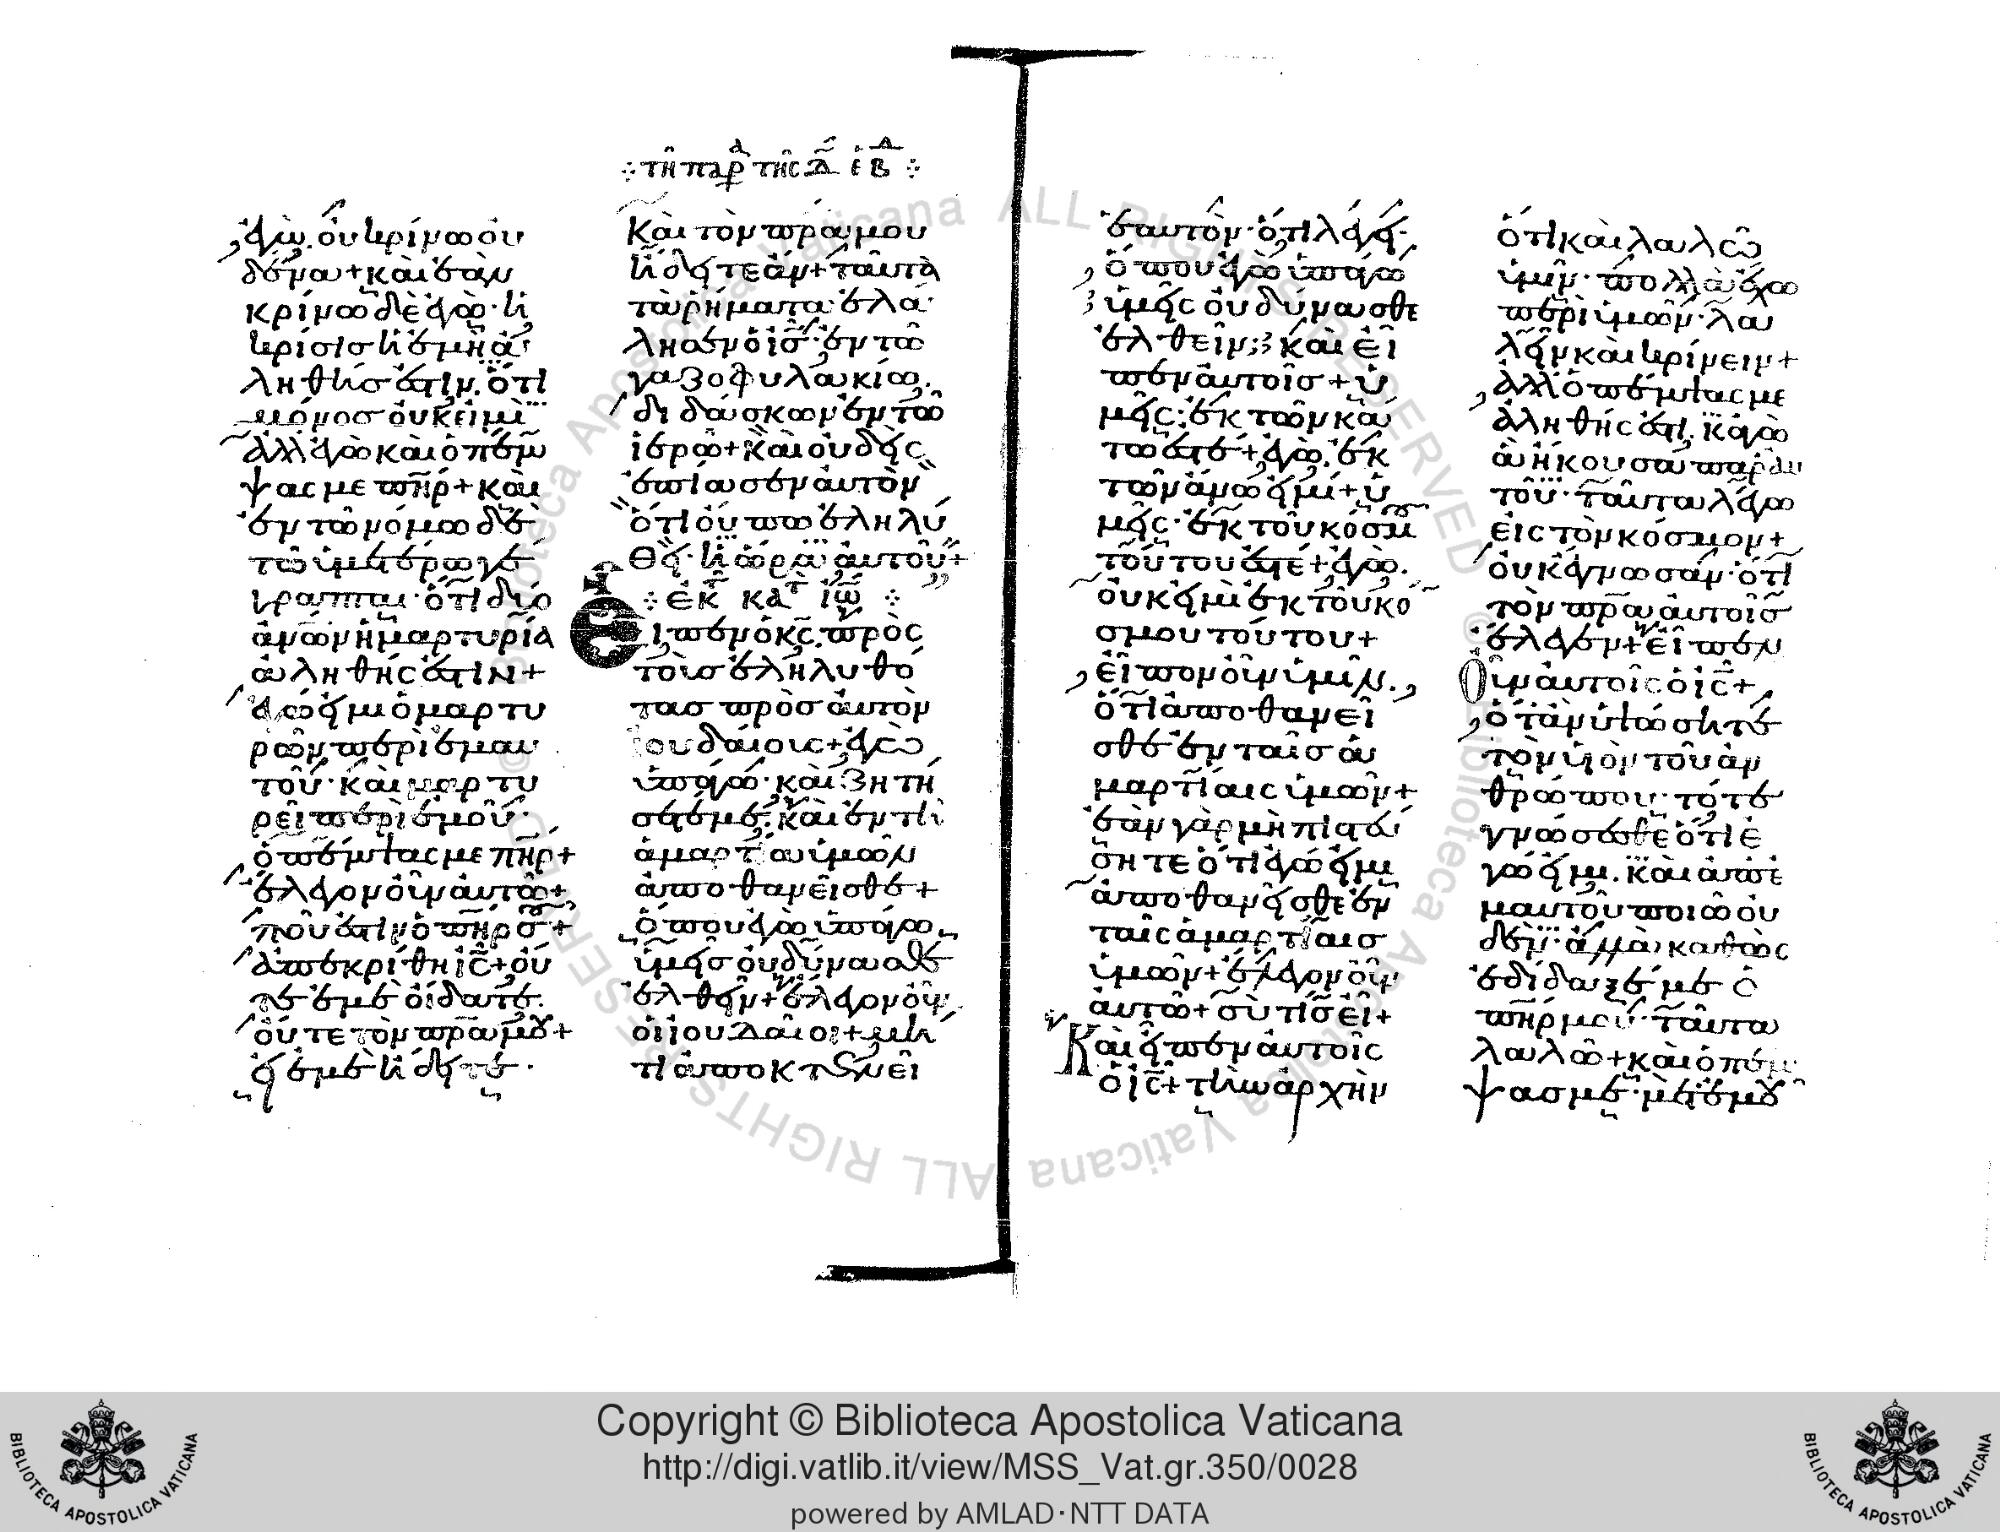 ἐγὼ. ὀυ κρίνω ὀυ
δένα + καὶ ἐὰν
κρίνω δὲ ἐγὼ · ἡ
κρίσισ ἡ ἐμὴ ἀ
ληθήσ ἐστιν. ὅτι
μόνοσ ὀυκ εἰμὶ
ἀλλ ἐγὼ καὶ ὁ πέμ
ψας με πηρ + καὶ
ἐν τῶ νόμω δὲ
τῶ ὑμετέρω γέ
γραπται · ὅτι δύο
ἀνων ἡ μαρτυρία
ἀληθής ἐστιν +
ἐγώ εἰμι ὁ μαρτυ
ρῶν περὶ ἐμαυ
τοῦ · καὶ μαρτυ
ρεῖ περὶ ἐμοῦ ·
ὁ πέμψας με πηρ +
ἔλεγον οὖν αὐτῶ +
ποῦ ἐστιν ὁ πηρ σου +
ἀπεκρίθη ις + οὔ
τε ἐμὲ οἴδατε.
οὔτε τὸν πρα μου +
εἰ ἐμὲ ἤδειτε ·
τῆ παρ τῆς δ ἑβδ
καὶ τὸν πρα μου
ἤδειτε ἄν + ταῦτα
τὰ ῥήματα ἐλά
λησεν ὁ ις · ἐν τῶ
γαζοφυλακίω.
διδάσκων ἐν τῶ
ἱερῶ + καὶ οὐδεὶς
ἐπίασεν αὐτὸν
ὅτι οὔπω ἐληλύ
θει · ἡ ὥρα αὐτοῦ +
ἐκ κατ ιω
Εἶπεν ὁ κς. πρὸς
τοὺσ ἐληλυθό
τασ πρὸσ αὐτὸν
ἰουδαίοις + ἐγὼ
ὑπάγω · καὶ ζητή
σετέ με. καὶ ἐν τῆ
ἁμαρτία ὑμῶν
ἀποθανεῖσθε +
ὅπου ἐγὼ ὑπάγω
ὑμεῖσ οὐ δύνασθε
ἐλθεῖν + ἔλεγον οὖν
οἱ ἰουδαῖοι + μή
τι ἀποκτενεῖ
ἑαυτόν · ὅτι λέγει ·
ὅπου ἐγὼ ὑπάγω
ὑμεῖς οὐ δύνασθε
ἐλθεῖν; καὶ εἶ
πεν αὐτοῖσ + ὑ
μεῖς · ἐκ τῶν κά
τω ἐστέ + ἐγὼ. ἐκ
τῶν ἄνω εἰμί + ὑ
μεῖς · ἐκ τοῦ κόσμου
τούτου ἐστέ + ἐγὼ.
οὐκ εἰμὶ ἐκ τοῦ κό
σμου τούτου +
εἶπον οὖν ὑμῖν.
ὅτι ἀποθανεῖ
σθε ἐν ταῖσ ἁ
μαρτίαις ὑμῶν +
ἐὰν γὰρ μὴ πιστεύ
σητε ὅτι ἐγώ εἰμι
ἀποθανεῖσθε ἐν
ταῖς ἁμαρτίαισ
ὑμῶν + ἔλεγον οὖν
αὐτῶ + σὺ τίσ εἶ +
Καὶ εἶπεν αὐτοῖς
ὁ ις + τὴν ἀρχὴν
ὅτι καὶ λαλῶ
ὑμῖν · πολλὰ ἔχω
περὶ ὑμῶν · λα
λεῖν καὶ κρίνειν +
ἀλλ ὁ πέμψας με
ἀληθής ἐστι. κἀγὼ
ἃ ἤκουσα παρ αυ
τοῦ · ταῦτα λέγω
εἰς τὸν κόσμον +
οὐκ ἔγνωσαν · ὅτι
τὸν πρα αὐτοῖσ
ἔλεγεν + εἶπεν
Οὖν αὐτοῖς ὁ ις +
ὅταν ὑψώσητε
τὸν υἱὸν τοῦ ἀν
θρώπου · τότε
γνώσεσθε ὅτι ἐ
γώ εἰμι. καὶ ἀπ ἐ
μαυτοῦ ποιῶ οὐ
δέν · ἀλλὰ καθὼς
ἐδίδαξέ με ὁ
πηρ μου · ταῦτα
λαλῶ + καὶ ὁ πέμ
ψασ με · μετ ἐμοῦ
Copyright © Biblioteca Apostolica Vaticana
http://digi.vatlib.it/view/MSS_Vat.gr.350/0028
powered by AMLAD·NTT DATA